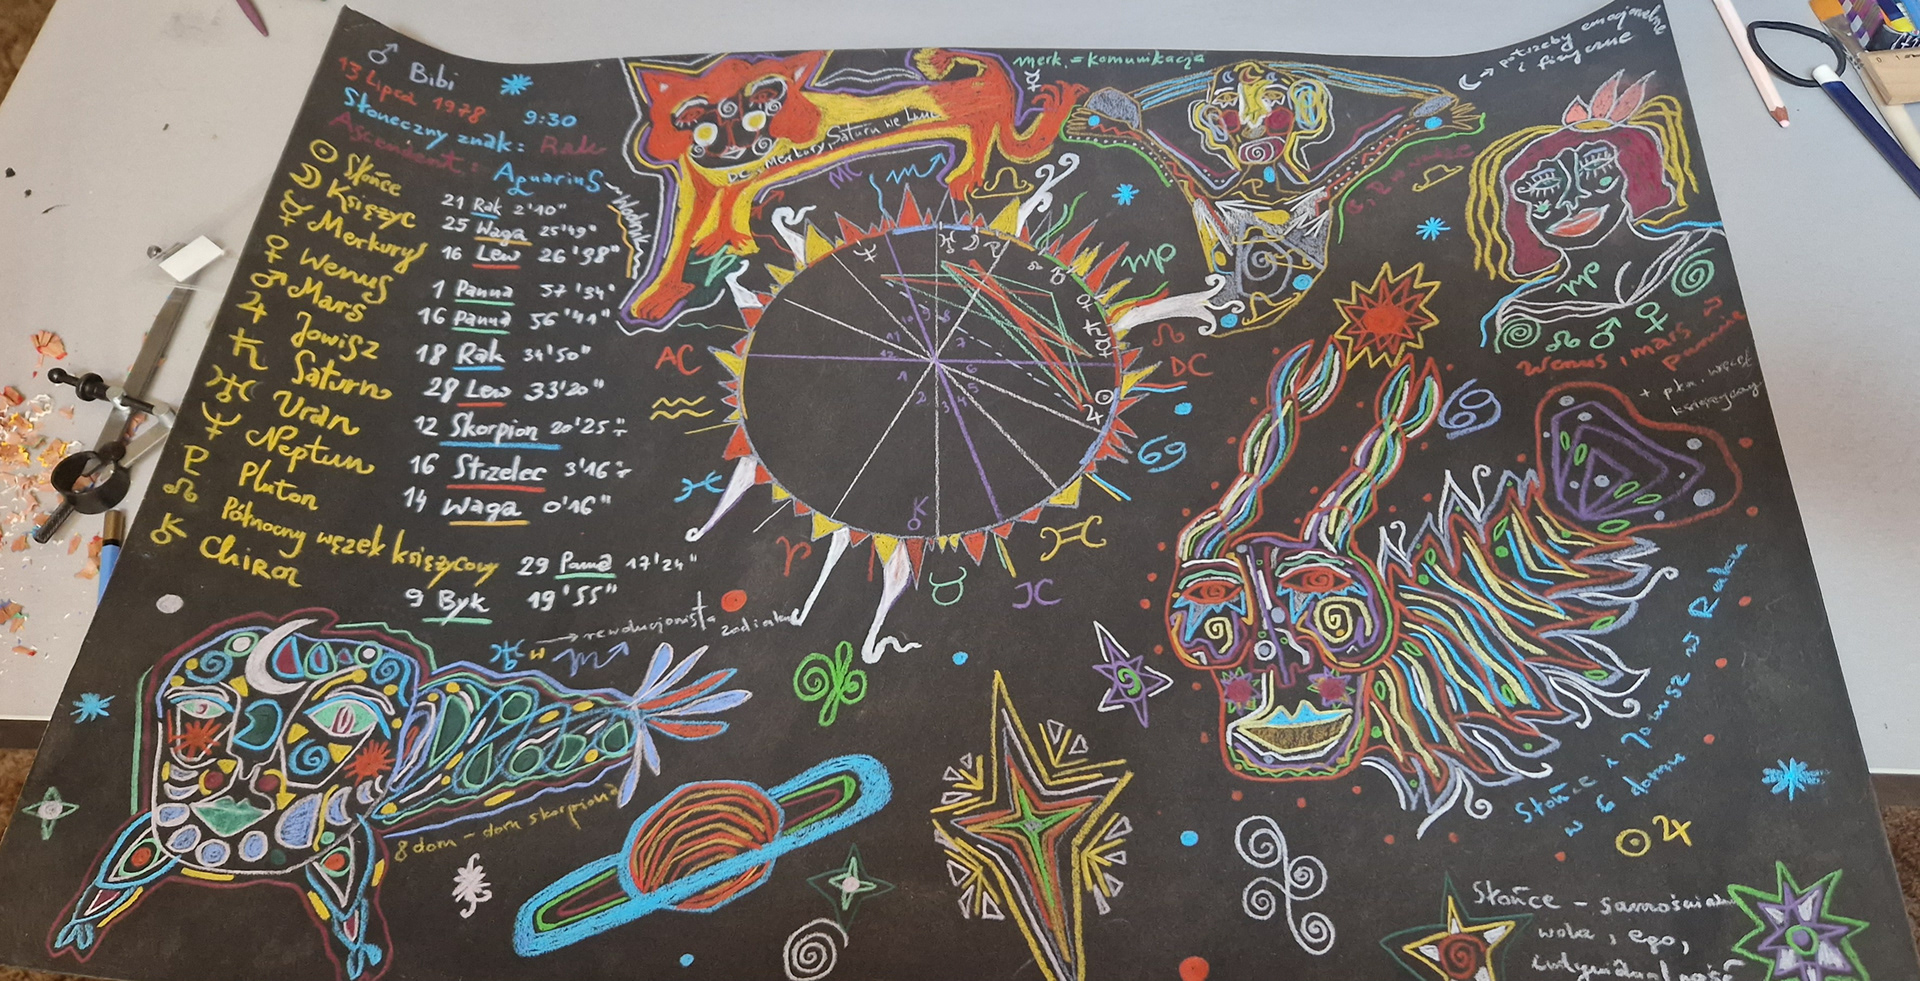 ♂ Bibi
13 Lipca 1978 9:30
Słoneczny znak: Rak
Ascendent: Aquarius
Wodnik
☉ Słońce 21 Rak 2'10"
☽ Księżyc 25 Waga 25'49"
☿ Merkury 16 Lew 26'38"
♀ Wenus 1 Panna 57'34"
♂ Mars 16 Panna 56'41"
♃ Jowisz 18 Rak 34'50"
♄ Saturn 28 Lew 33'20"
♅ Uran 12 Skorpion 20'25"
♆ Neptun 16 Strzelec 3'16"
♇ Pluton 14 Waga 0'16"
☊ Północny węzeł księżycowy 29 Panna 17'24"
⚷ Chiron 9 Byk 19'55"
Merkury, Saturn we Lwie
merk. = komunikacja
☿
☽ → potrzeby emocjonalne
i fizyczne
MC ♏ ♎
♍
♌
DC
AC
♒
♋
♓
♈
♉
♊
IC
12 1 2 3 4 5 6 7
♎
♋
♍
☊ ♂ ♀
Wenus i mars w
pannie
+ płn. węzeł
księżycowy
♅ w ♏ → rewolucjonista
zodiaku
8 dom - dom skorpiona
Słońce i Jowisz w Raku
w 6 domu
☉ ♃
Słońce -
wola, ego,